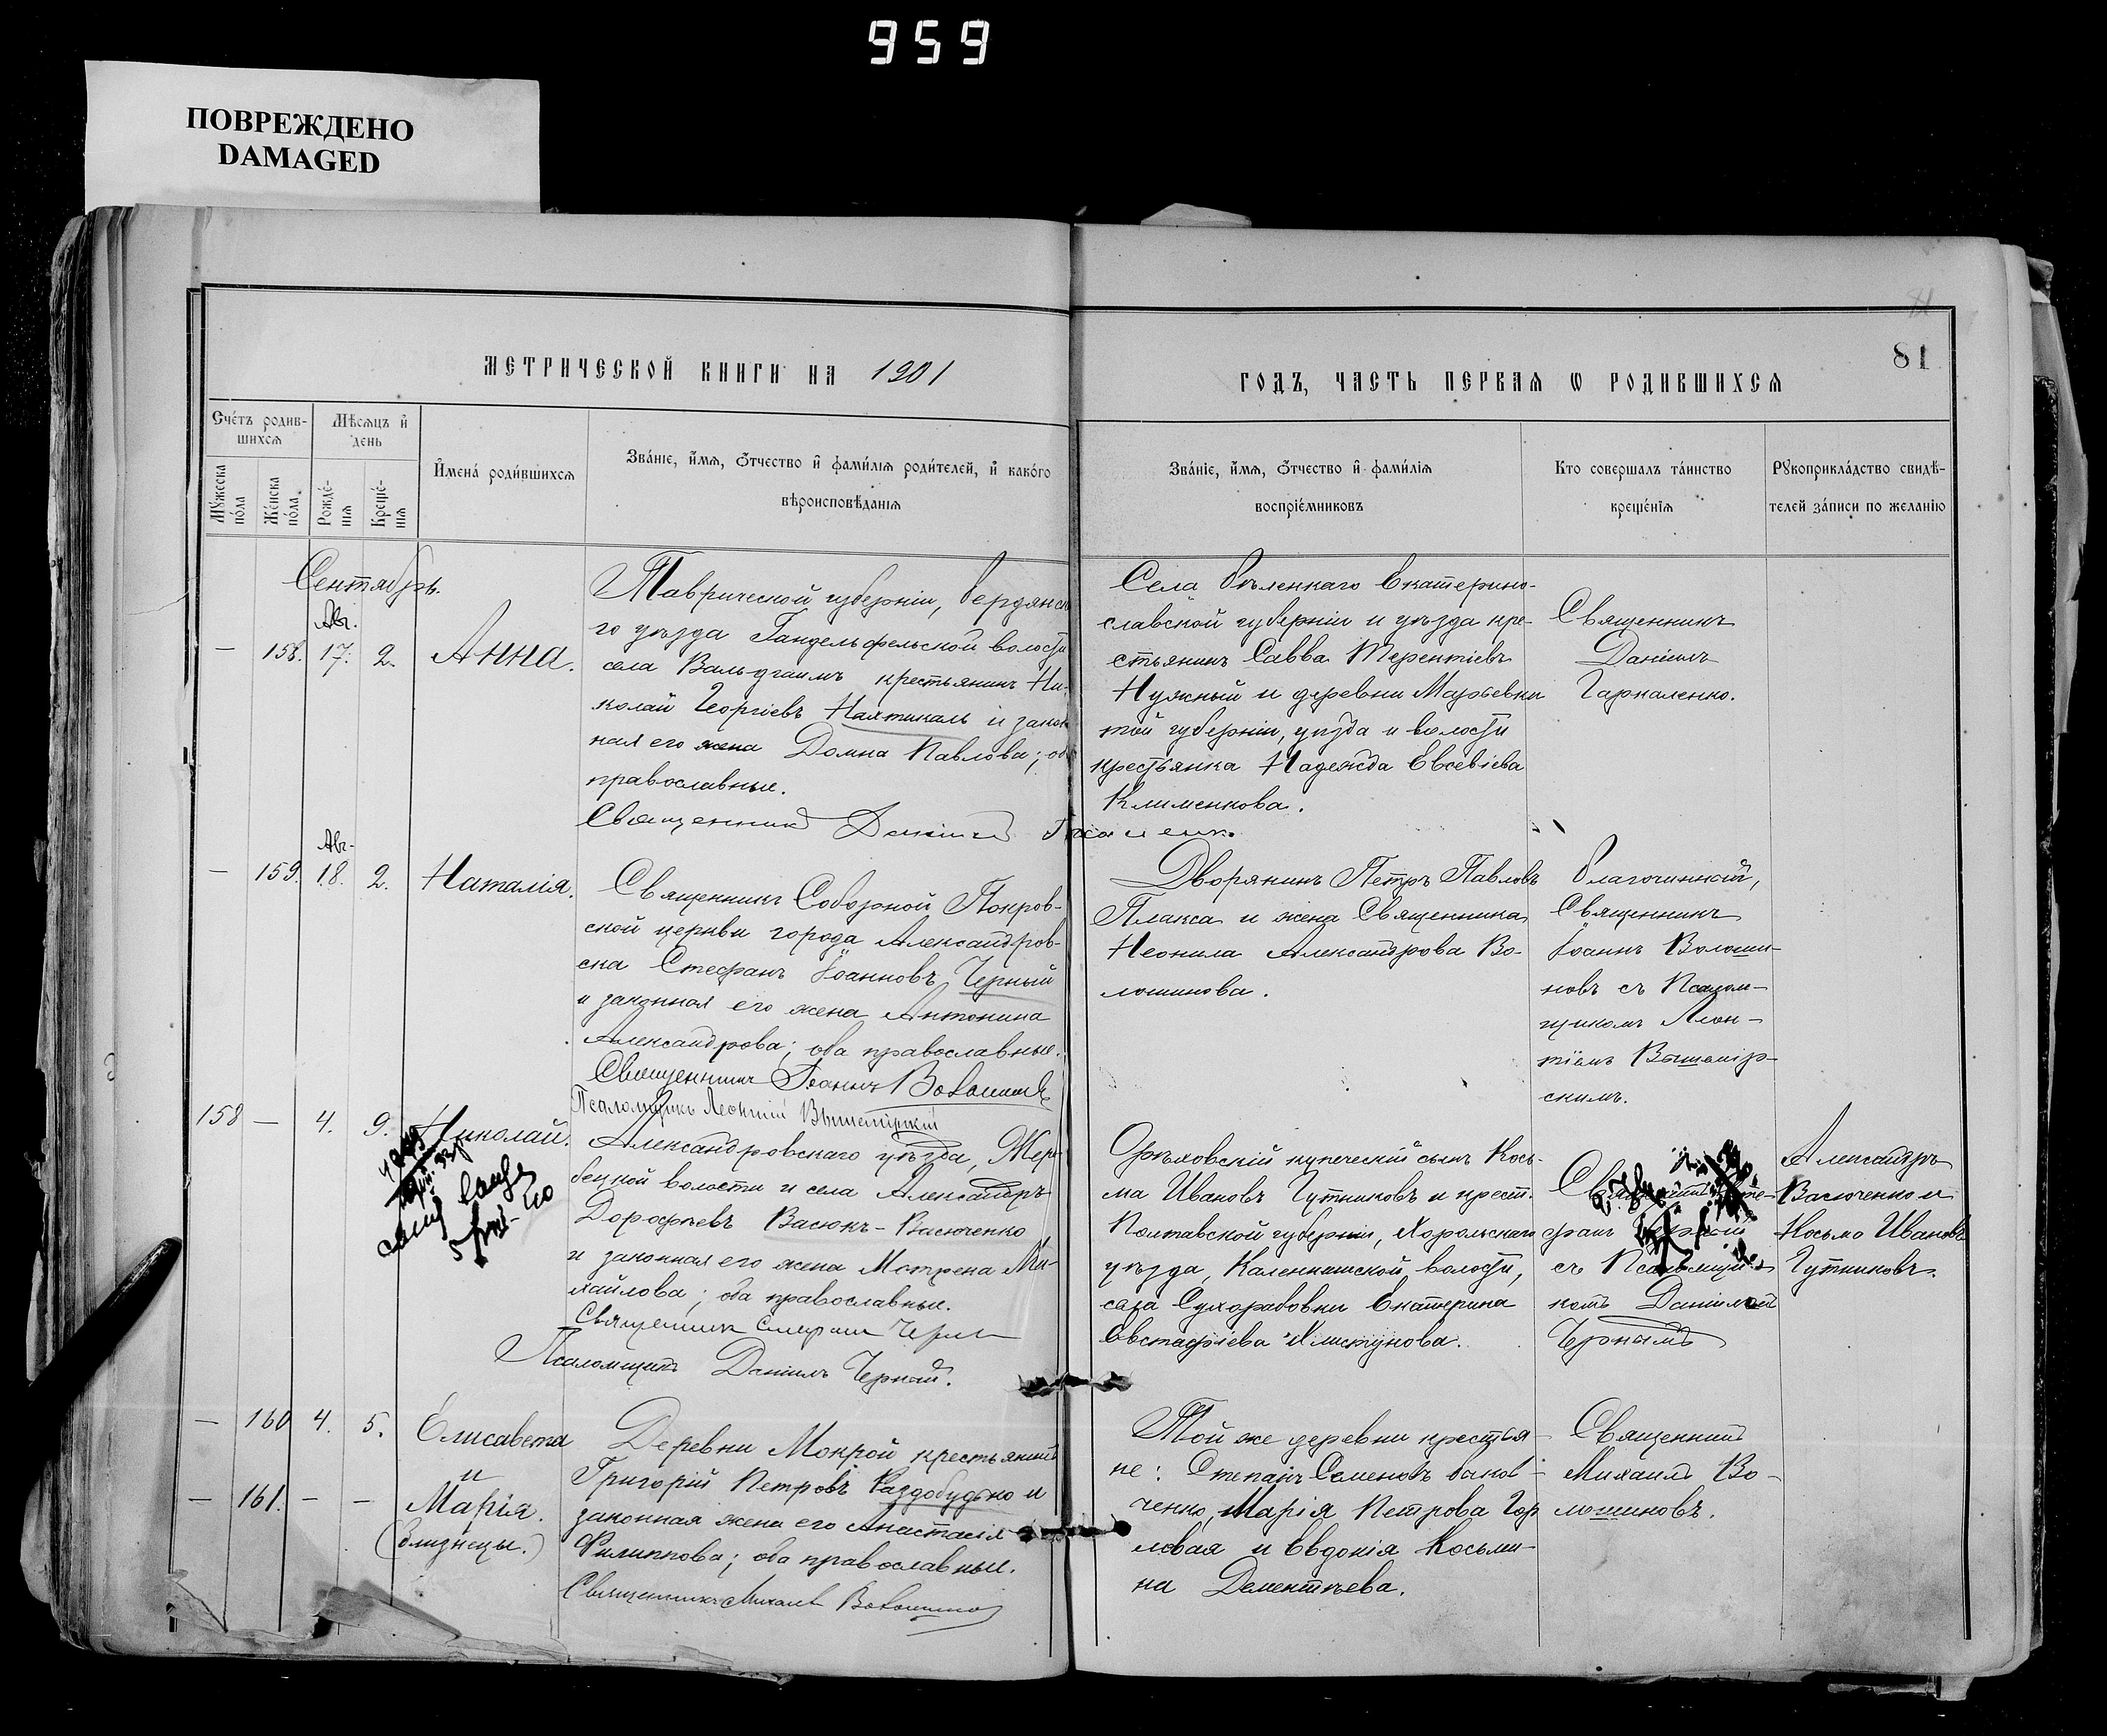 959
ПОВРЕЖДЕНО
DAMAGED
81
МЕТРИЧЕСКОЙ КНИГИ НА 1901
ГОДЪ, ЧАСТЬ ПЕРВАѦ Ѡ РОДИВШИХСѦ
Счéтъ родив-
шихсѧ
Мѣсѧцъ и
день
Мꙋжеска
пола
Женска
пола
Рождé-
нїѧ
Крещé-
нїѧ
Именà роди́вшихсѧ
Звáнїе, и́мѧ, ѻ́тчество и фами́лїѧ роди́телей, и какóго
вѣроисповѣданїѧ
Звáнїе, и́мѧ, ѻ́тчество и фами́лїѧ
воспрїéмниковъ
Кто совершалъ тáинство
крещéнїѧ
Рꙋкоприклáдство свидѣ-
телей зáписи по желанїю
Сентябрь.
Авг.
— 158. 17. 2. Анна.
Таврической губерніи, Бердянска
го уѣзда Гандельфельской волости
села Вальдгаимъ крестьянинъ Ни-
колай Георгіевъ Нахтигаль и закон
ная его жена Домна Павлова; оба
православные.
Священникъ Даніилъ Гаркаленко.
Села Бѣленкаго Екатерино-
славской губерніи и уѣзда кре-
стьянинъ Савва Терентіевъ
Нужный и деревни Марьевки
той губерніи, уѣзда и волости
крестьянка Надежда Евсевіева
Клименкова.
Священникъ
Даніилъ
Гаркаленко.
Авг.
— 159. 18. 2. Наталія.
Священникъ Соборной Покров-
ской церкви города Александров-
ска Стефанъ Іоанновъ Черный
и законная его жена Антонина
Александрова; оба православные.
Священникъ Іоаннъ Волошиновъ
Псаломщикъ Леонтій Вышемірскій
Дворянинъ Петръ Павловъ
Плакса и жена Священника
Неонила Александрова Во-
лошинова.
Благочинный,
Священникъ
Іоаннъ Волоши-
новъ съ Псалом-
щикомъ Леон-
тіемъ Вышемір-
скимъ.
158 — 4. 9. Николай.
Александровскаго уѣзда, Жере-
бецкой волости и села Александръ
Дорофѣевъ Васюкъ-Васюченко
и законная его жена Мотрена Ми-
хайлова; оба православные.
Священникъ Стефанъ Черный
Псаломщикъ Даніилъ Черный.
Орѣховскій купеческій сынъ Кось-
ма Ивановъ Гутниковъ и крест.
Полтавской губерніи, Хорольскаго
уѣзда, волости,
села Сухорабовки Екатерина
Евстафіева Хлистунова.
Священникъ Сте-
фанъ Черный
съ Псаломщи-
комъ Даніиломъ
Чернымъ
Александръ
Васюченко и
Косьма Ивановъ
Гутниковъ.
— 160 4. 5. Елисавета
и
— 161. — — Марія.
(близнецы.)
Деревни Мокрой крестьянинъ
Григорій Петровъ Раздобудько и
законная жена его Анастасія
Филиппова; оба православные.
Священникъ Михаилъ Волошиновъ
Той же деревни крестья-
не: Степанъ Семеновъ
ченко, Марія Петрова Гор
ловая и Евдокія Косьми-
на Дементьева.
Священникъ
Михаилъ Во-
лошиновъ.